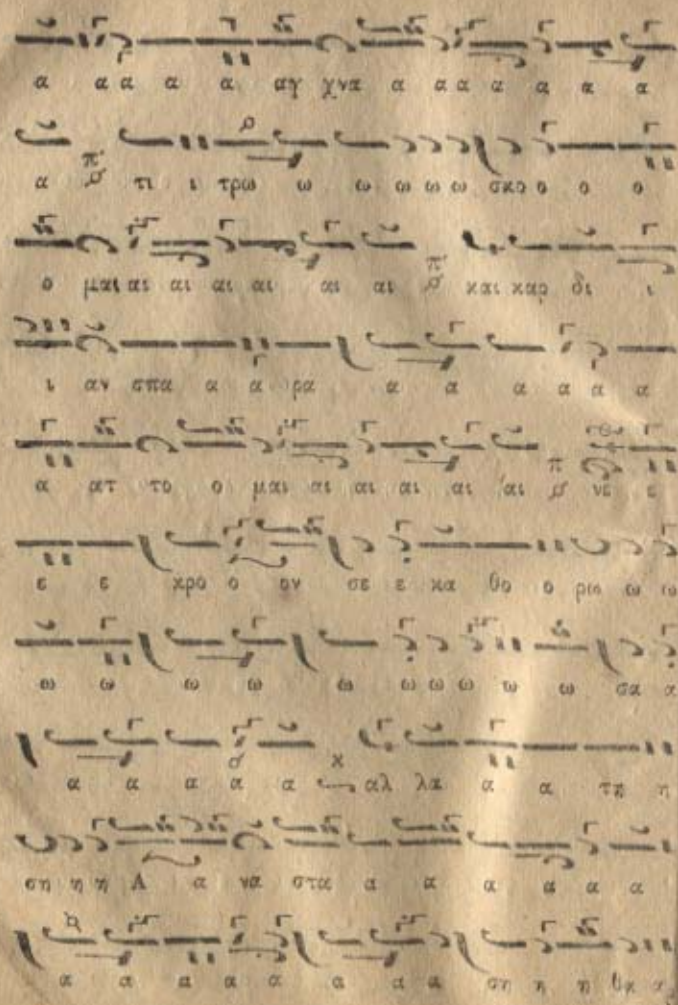 α α α α α αγ χνα α α α α α α α α
α π τι ι τρω ω ω ω ω ω σκο ο ο ο
ο μαι αι αι αι αι αι αι π και καρ δι ι
ι αν σπα α α ρα α α α α α α
α ατ το ο μαι αι αι αι αι αι π νε ε
ε ε κρο ο ον σε ε κα θο ο ρω ω ω
ω ω ω ω ω ω ω ω ω ω σα α
α α α α α κ αλ λα α α τη η
ση η η Α α να στα α α α α α α
α α α α α α α α ση η η θη